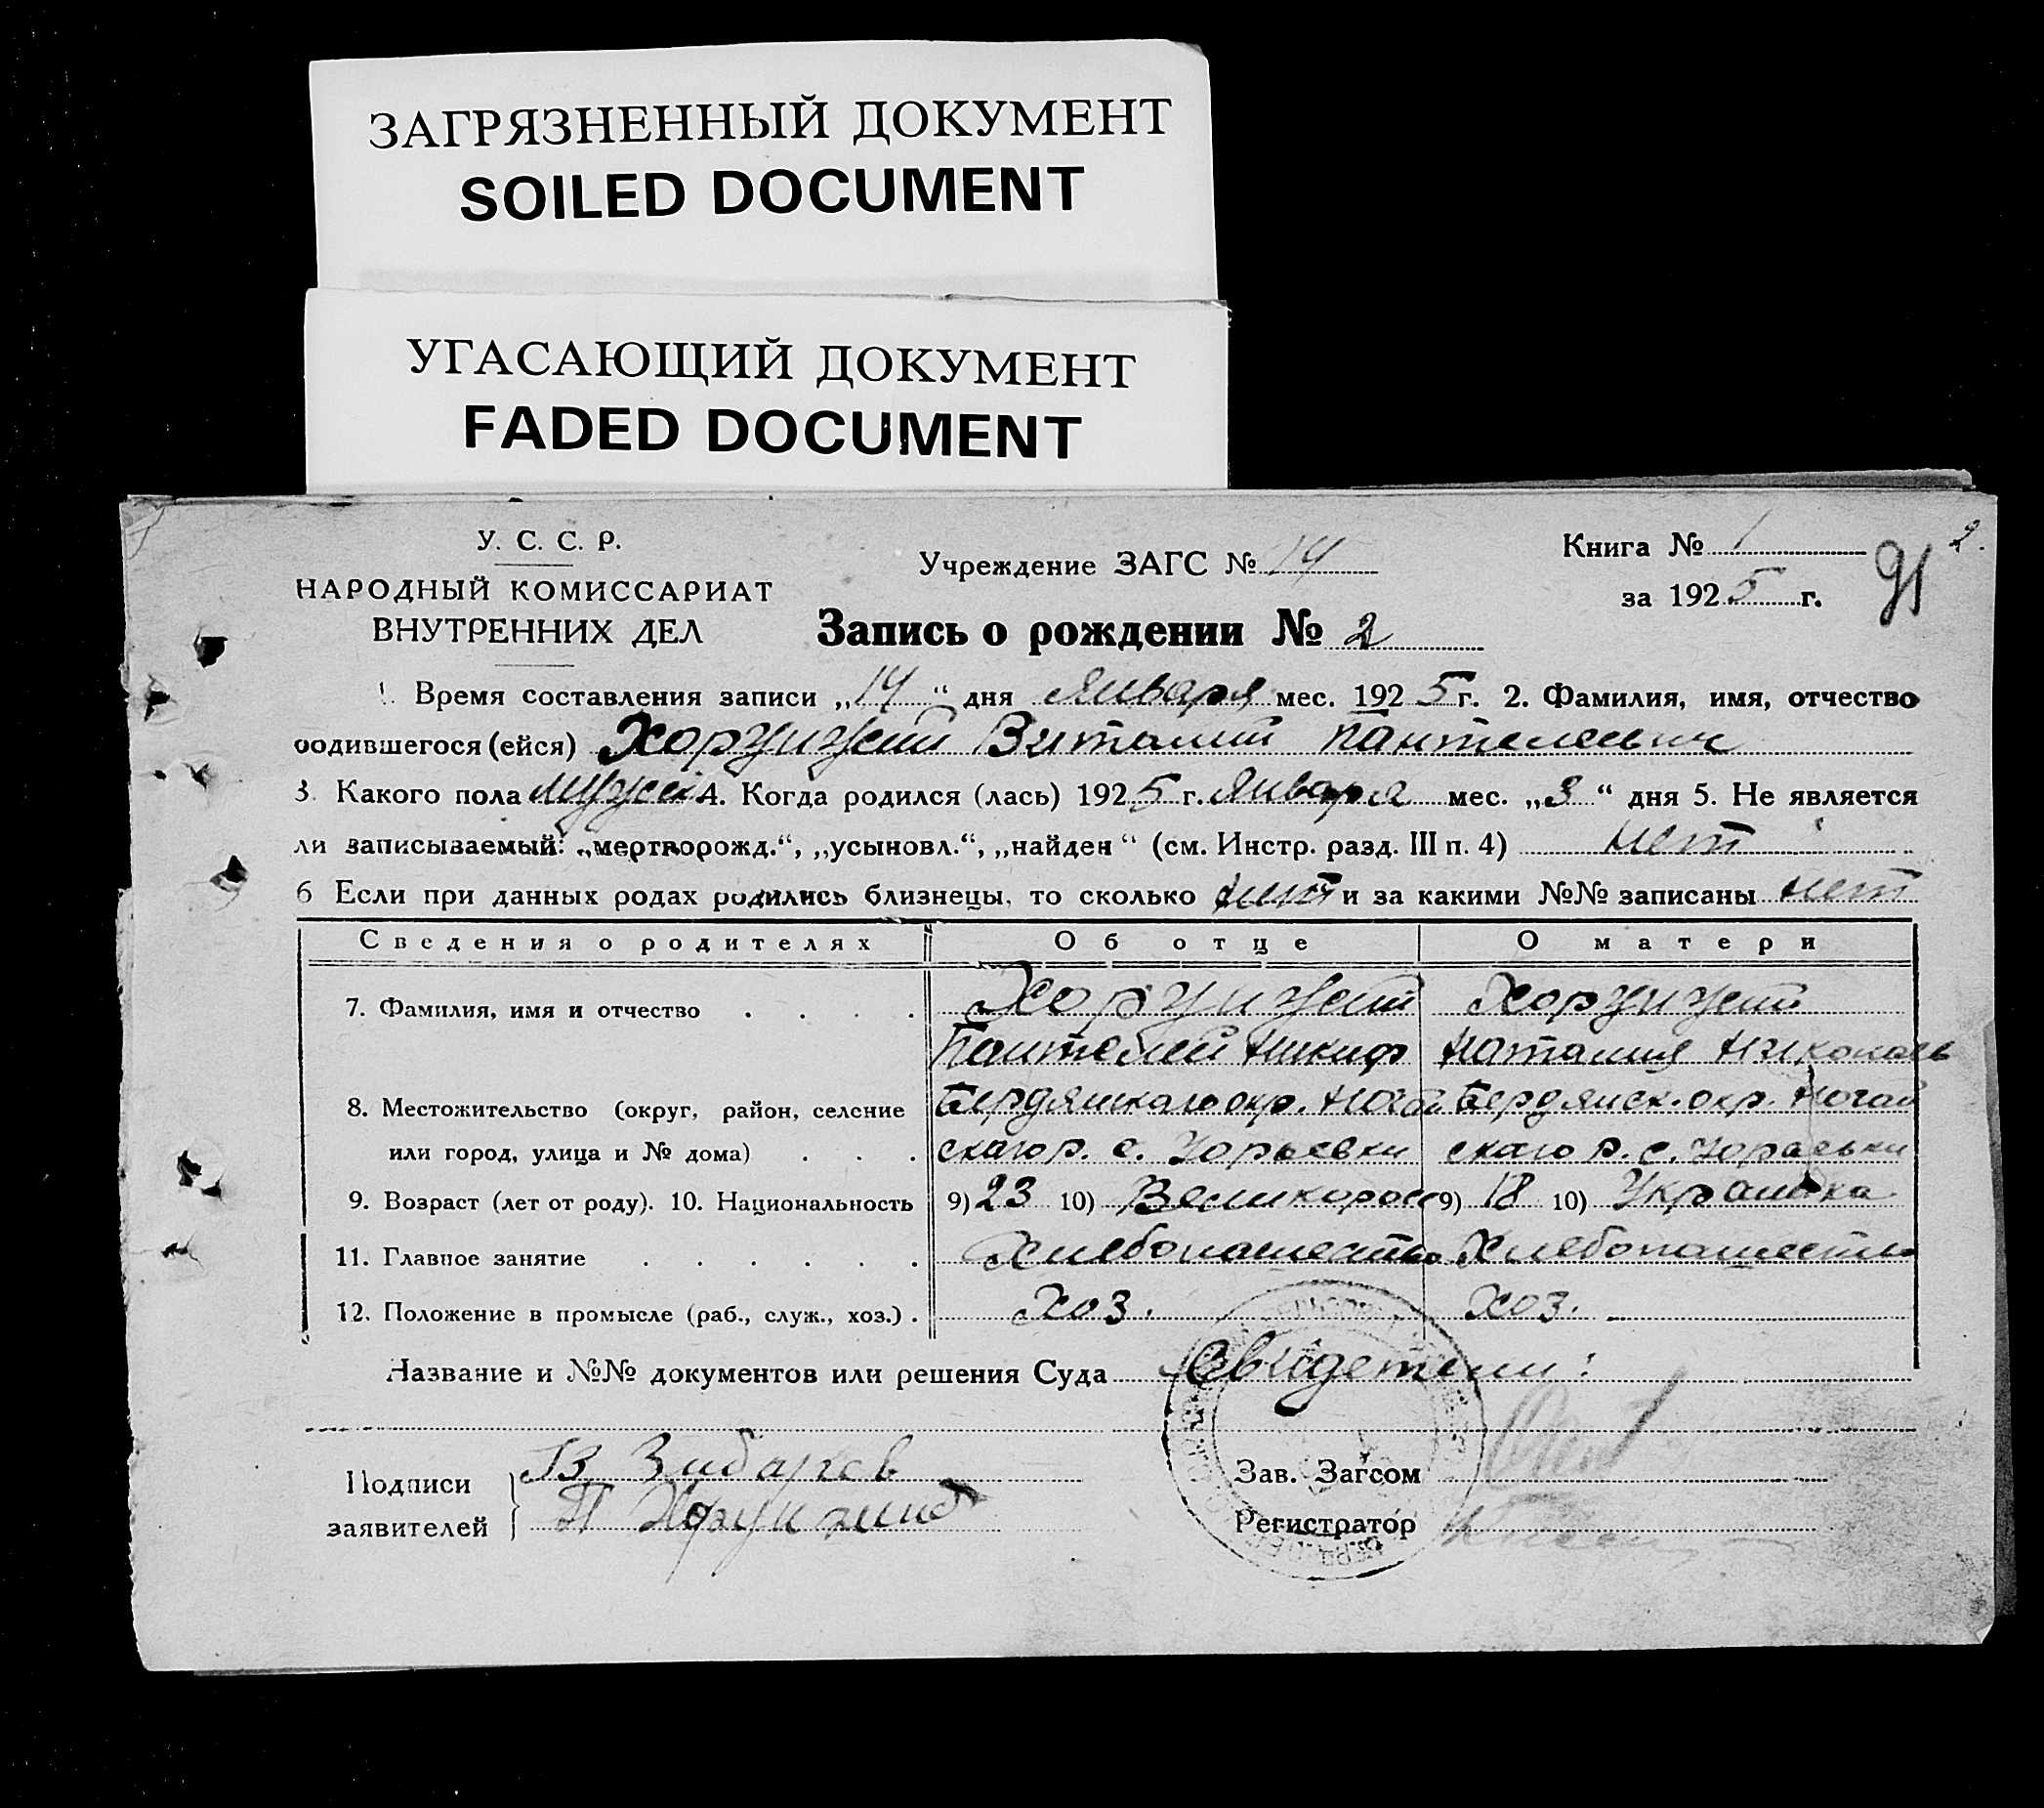 ЗАГРЯЗНЕННЫЙ ДОКУМЕНТ
SOILED DOCUMENT
УГАСАЮЩИЙ ДОКУМЕНТ
FADED DOCUMENT
У. С. С. Р.
НАРОДНЫЙ КОМИССАРИАТ
ВНУТРЕННИХ ДЕЛ
Учреждение ЗАГС № 14
Книга № 1
2.
за 1925 г.
91
Запись о рождении № 2
1. Время составления записи „14“ дня Января мес. 1925 г. 2. Фамилия, имя, отчество
родившегося (ейся) Хорунжий Виталий Пантелеевич
3. Какого пола мужск 4. Когда родился (лась) 1925 г. Января мес. „3“ дня 5. Не является
ли записываемый: „мертворожд.“, „усыновл.“, „найден“ (см. Инстр. разд. III п. 4) нет
6 Если при данных родах родились близнецы, то сколько нет и за какими №№ записаны нет
Сведения о родителях Об отце О матери
7. Фамилия, имя и отчество Хорунжий Хорунжий
Пантелей Никиф Наталия Николаев
8. Местожительство (округ, район, селение Бердянскаго окр. Ногай Бердянск. окр. Ногай
или город, улица и № дома) скаго р. с. Юрьевки скаго р. с. Юрьевки
9. Возраст (лет от роду). 10. Национальность 9) 23 10) Великоросс 9) 18 10) Украинка
11. Главное занятие Хлебопашество Хлебопашество
12. Положение в промысле (раб., служ., хоз.) Хоз. Хоз.
Название и №№ документов или решения Суда Свидетели:
Подписи
заявителей
В Зибарев
П Хорунжий
Зав. Загсом
Регистратор